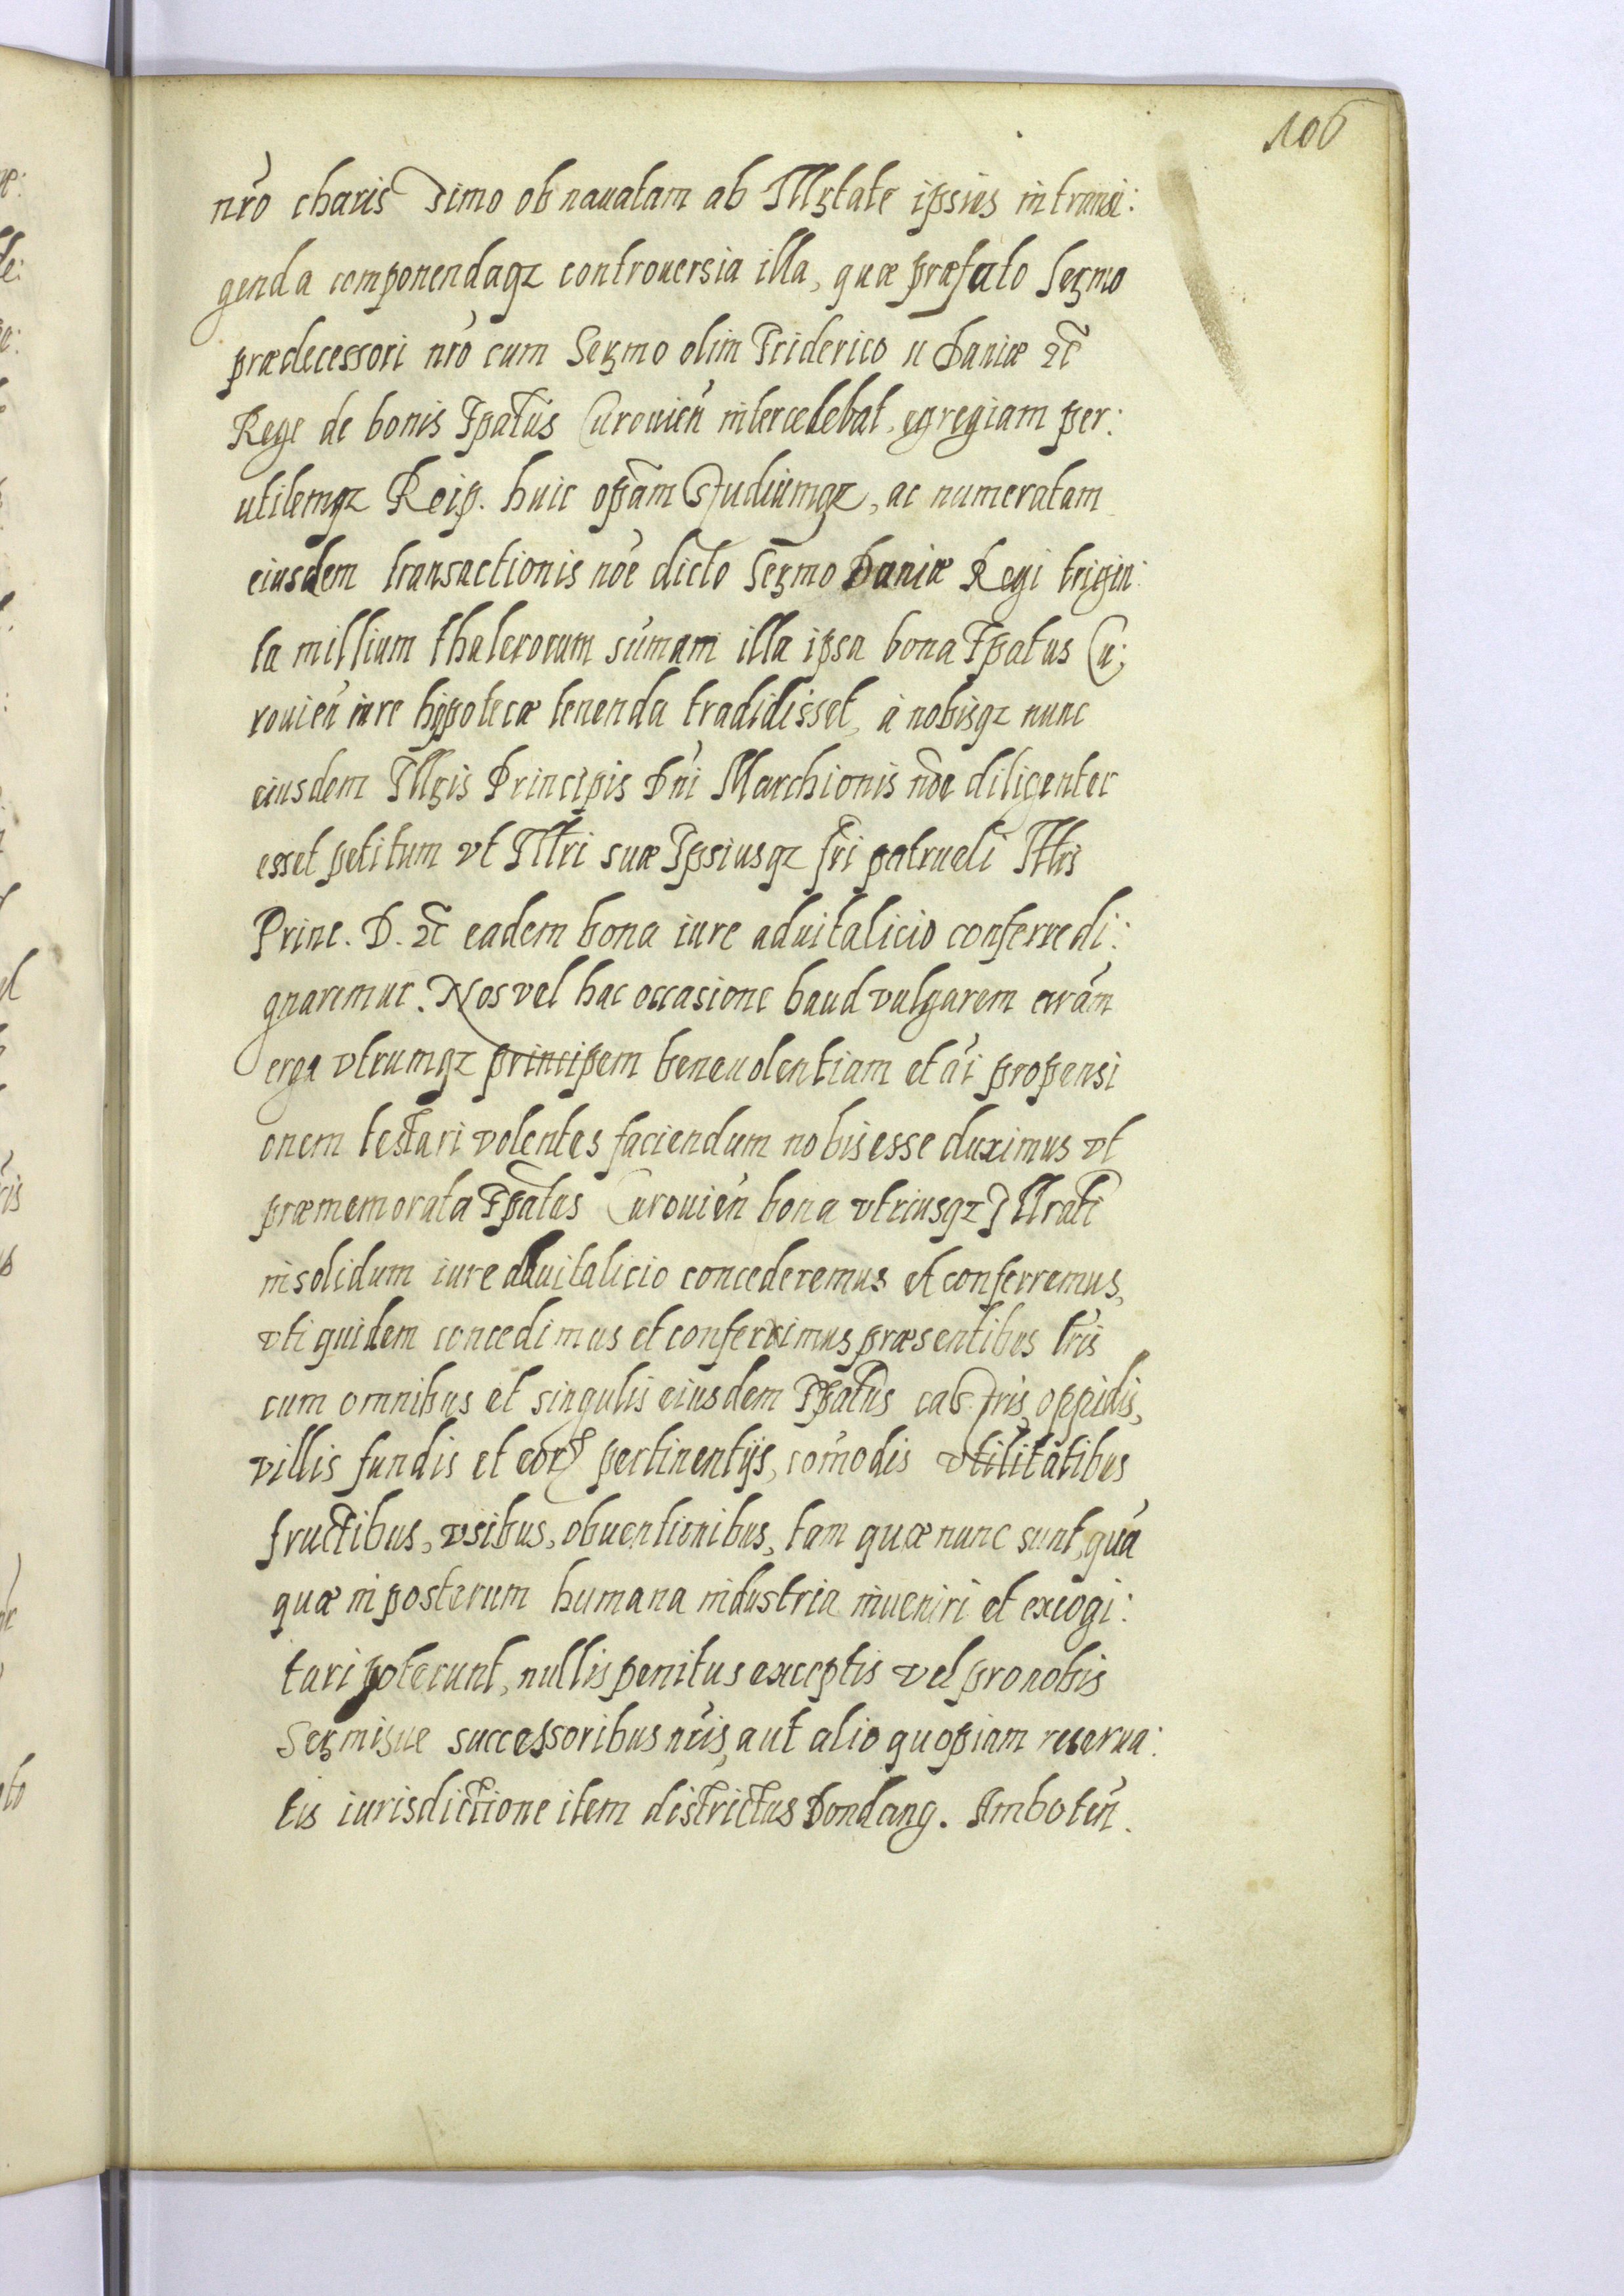 106
nr̃o charissimo ob nauatam ab Illꝫtate ipsius in transi:
genda componendaqꝫ controuersia illa, quæ præfato Seꝫmo
prædecessori nr̃o cum Seꝫmo olim Friderico II Daniæ ꝛc̃
Rege de bonis Ep̃atus Curonień intercedebat, egregiam per:
utilemqꝫ Reip. huic op̃am studiumqꝫ, ac numeratam
eiusdem transactionis nõe dicto Seꝫmo Daniæ Regi trigin:
ta millium thalerorum sum̃am illa ipsa bona Ep̃atus Cu:
ronień iure hÿpotecæ tenenda tradidisset, à nobisqꝫ nunc
eiusdem Illꝫis Principis Dñi Marchionis nõe diligenter
esset petitum vt Illr̃i suæ Ipsiusqꝫ fr̃i patrueli Illr̃is
Princ. D. ꝛc̃ eadem bona iure aduitalicio conferre di:
gnaremur. Nos vel hac occasione haud vulgarem nr̃am
erga vtrumqꝫ principem beneuolentiam et ãi propensi
onem testari volentes faciendum nobis esse duximus vt
præmemorata Ep̃atus Curonień bona vtriusqꝫ Illr̃ati
in solidum iure aduitalicio concederemus et conferremus,
vti quidem concedimus et conferimus præsentibus lr̃is
cum omnibus et singulis eiusdem Ep̃atus castris, oppidis,
villis fundis et eorꝫ pertinentijs, com̃odis vtilitatibus
fructibus, vsibus, obuentionibus, tam quæ nunc sunt, quã
quæ in posterum humana industria inueniri et excogi:
tari poterunt, nullis penitus exceptis vel pro nobis
Seꝫmisue successoribus nr̃is, aut alio quopiam reserua:
tis iurisdictione item districtus Dondang. Amboteń.